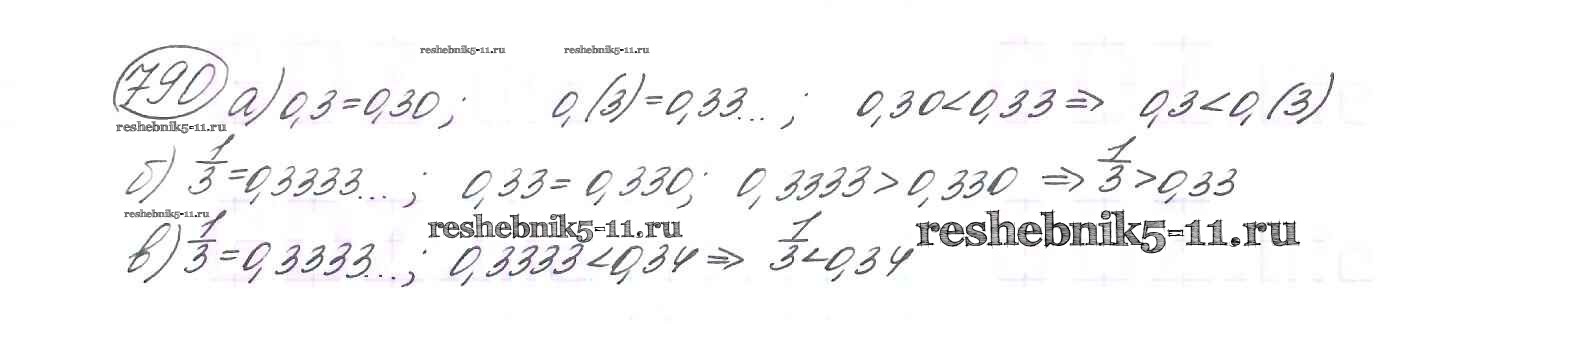 reshebnik5-11.ru reshebnik5-11.ru
790 а) 0,3=0,30; 0,(3)=0,33...; 0,30<0,33 ⇒ 0,3<0,(3)
reshebnik5-11.ru
б) 1/3=0,3333...; 0,33=0,330; 0,3333>0,330 ⇒ 1/3>0,33
reshebnik5-11.ru reshebnik5-11.ru reshebnik5-11.ru
в) 1/3=0,3333...; 0,3333<0,34 ⇒ 1/3<0,34